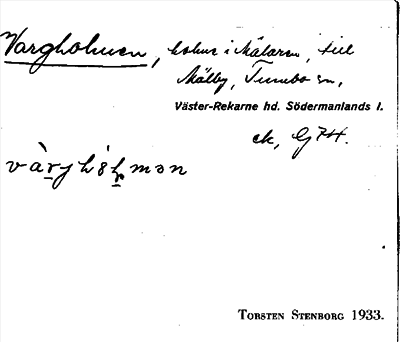 Vargholmen, holme i Mälaren, till
Mälby, Tumbo sn,
Väster-Rekarne hd. Södermanlands l.
ek, G 74.
vàrjhól̥mən
TORSTEN STENBORG 1933.